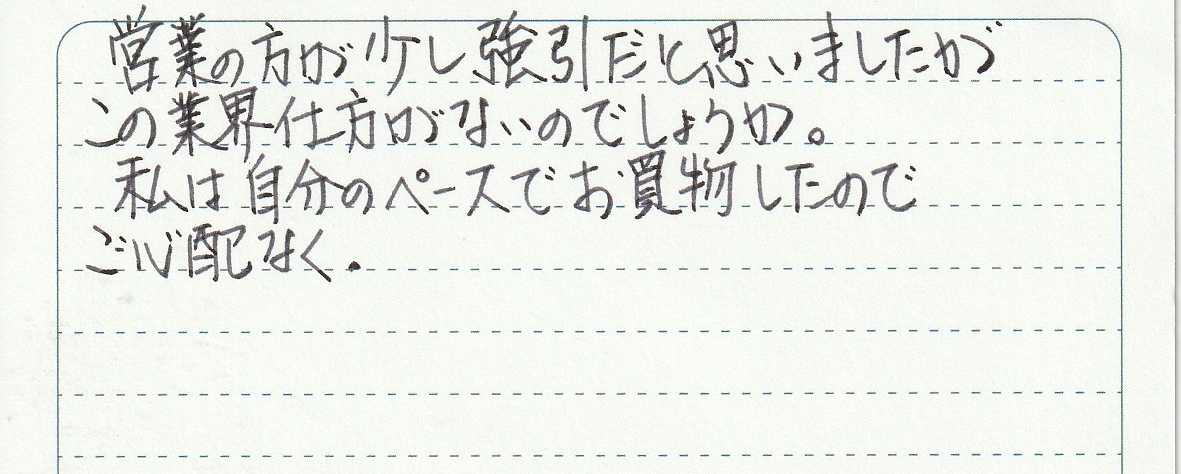 営業の方が少し強引だと思いましたが
この業界仕方がないのでしょうか。
私は自分のペースでお買物したので
ご心配なく.